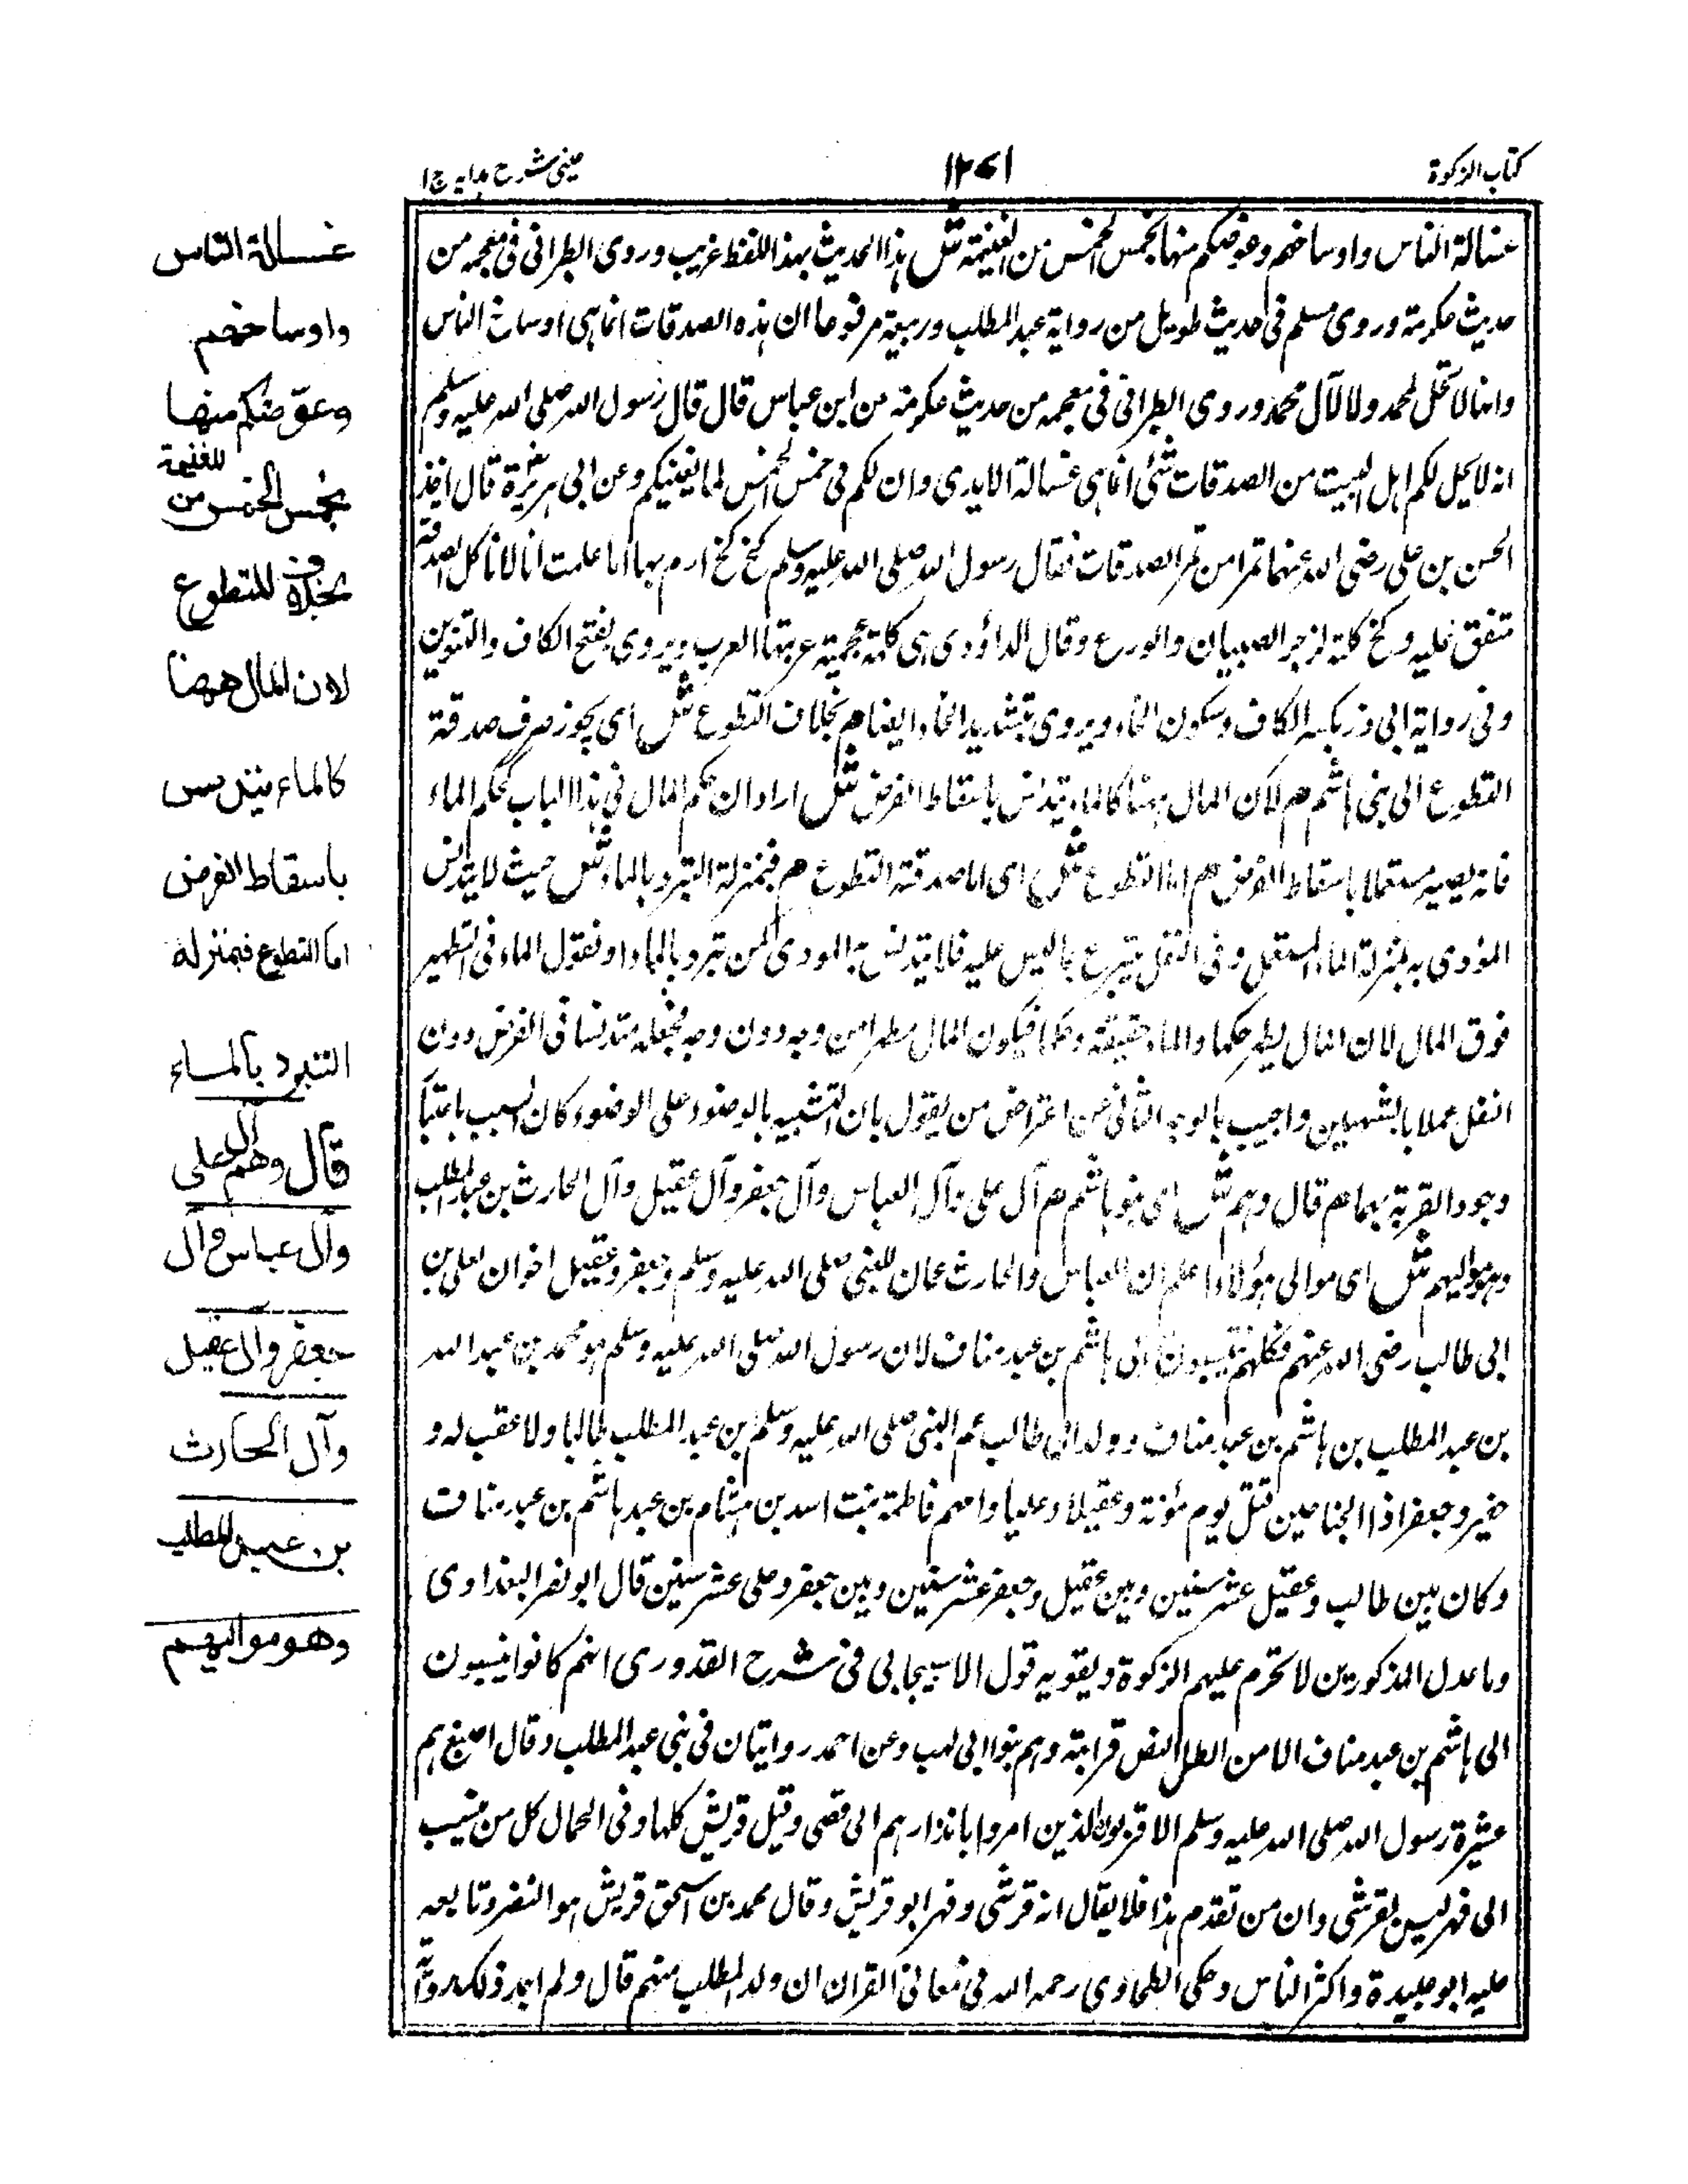 كتاب الزكوة
١٢٧١
عينى شرح هدايه ج ١
غسالة الناس واوساخهم وعوضكم منها بخمس الخمس من الغنيمة ش هذا الحديث بهذا اللفظ غريب وروى الطبرانى فى معجمه من
حديث عكرمة وروى مسلم فى حديث طويل من رواية عبد المطلب وربيعة مرفوعا ان هذه الصدقات انما هى اوساخ الناس
وانها لا تحل لمحمد ولا لآل محمد وروى الطبرانى فى معجمه من حديث عكرمة عن ابن عباس قال قال رسول الله صلى الله عليه وسلم
انه لا يحل لكم اهل البيت من الصدقات شئ انما هى غسالة الايدى وان لكم فى خمس الخمس لما يغنيكم وعن ابى هريرة قال اخذ
الحسن بن على رضى الله عنهما تمرا من تمر الصدقات فقال رسول الله صلى الله عليه وسلم كخ كخ ارم بها اما علمت انا لا ناكل الصدقة
متفق عليه وكخ كلمة لزجر الصبيان والورع وقال الداؤدى هى كلمة عجمية عربتها العرب ويروى بفتح الكاف والتنوين
وفى رواية ابى ذر بكسر الكاف وسكون الخاء ويروى بتشديد الخاء ايضا هم بخلاف التطوع ش اى يجوز صرف صدقة
التطوع الى بنى هاشم هم لان المال ههنا كالماء يتدنس باسقاط الفرض ش اراد ان حكم المال فى هذا الباب كحكم الماء
فانه يصير مستعملا باسقاط الفرض هم اما التطوع ش اى اما صدقة التطوع هم فبمنزلة التبرد بالماء ش حيث لا يتدنس
المؤدى به بمنزلة الماء المستعمل وفى النفل يتبرع بما ليس عليه فلا يتدنس به المودى كمن تبرد بالماء او نقول الماء فى التطهير
فوق المال لان المال يطهر حكما والماء حقيقة وحكما فيكون المال مطهرا من وجه دون وجه فجعله متدنسا فى الفرض دون
النفل عملا بالشبهين واجيب بالوجه الثانى عن اعتراض من يقول بان التشبيه بالوضوء على الوضوء كان انسب باعتبار
وجود القربة بهما هم قال وهم ش اى بنو هاشم هم آل على وآل العباس وآل جعفر وآل عقيل وآل الحارث بن عبد المطلب
وهو مواليهم ش اى موالى هؤلاء اعلم ان العباس والحارث عمان للنبى صلى الله عليه وسلم وجعفر وعقيل اخوان لعلى بن
ابى طالب رضى الله عنهم فكلهم ينسبون الى هاشم بن عبد مناف لان رسول الله صلى الله عليه وسلم هو محمد بن عبد الله
بن عبد المطلب بن هاشم بن عبد مناف وولد ابى طالب عم النبى صلى الله عليه وسلم بن عبد المطلب طالبا ولا عقب له و
جعفر اذا الجناحين قتل يوم مؤتة وعقيلا وعليا وامهم فاطمة بنت اسد بن هشام بن عبد هاشم بن عبد مناف
وكان بين طالب وعقيل عشر سنين وبين عقيل وجعفر عشر سنين وبين جعفر وعلى عشر سنين قال ابو نصر البغدادى
وما عدل المذكورين لا تحرم عليهم الزكوة ويقويه قول الاسبيجابى فى شرح القدورى انهم كانوا ينسبون
الى هاشم بن عبد مناف الا من ابطل النص قرابته وهم بنو ابى لهب وعن احمد روايتان فى بنى عبد المطلب وقال اصبغ هم
عشيرة رسول الله صلى الله عليه وسلم الاقربون الذين امروا بانذارهم الى قصى وقيل قريش كلها وفى الحمال كل من ينسب
الى فهر ليس بقرشى وان من تقدم هذا فلا يقال انه قرشى وفهر ابو قريش وقال محمد بن اسحق قريش هو النضر وتابعه
عليه ابو عبيدة واكثر الناس وحكى الطحاوى رحمه الله فى معانى القران ان ولد المطلب منهم قال ولم اجد ذلك رواية
غسالة الناس
واوساخهم
وعوّضكم منها
بخمس الخمس من
للغنيمة
بخلاف للتطوع
لان المال ههنا
كالماء يتدنس
باسقاط الفرض
اما التطوع فبمنزلة
التبرد بالماء
قال وهم آل على
وآل عباس وآل
جعفر وآل عقيل
وآل الحارث
بن عبد المطلب
وهو مواليهم